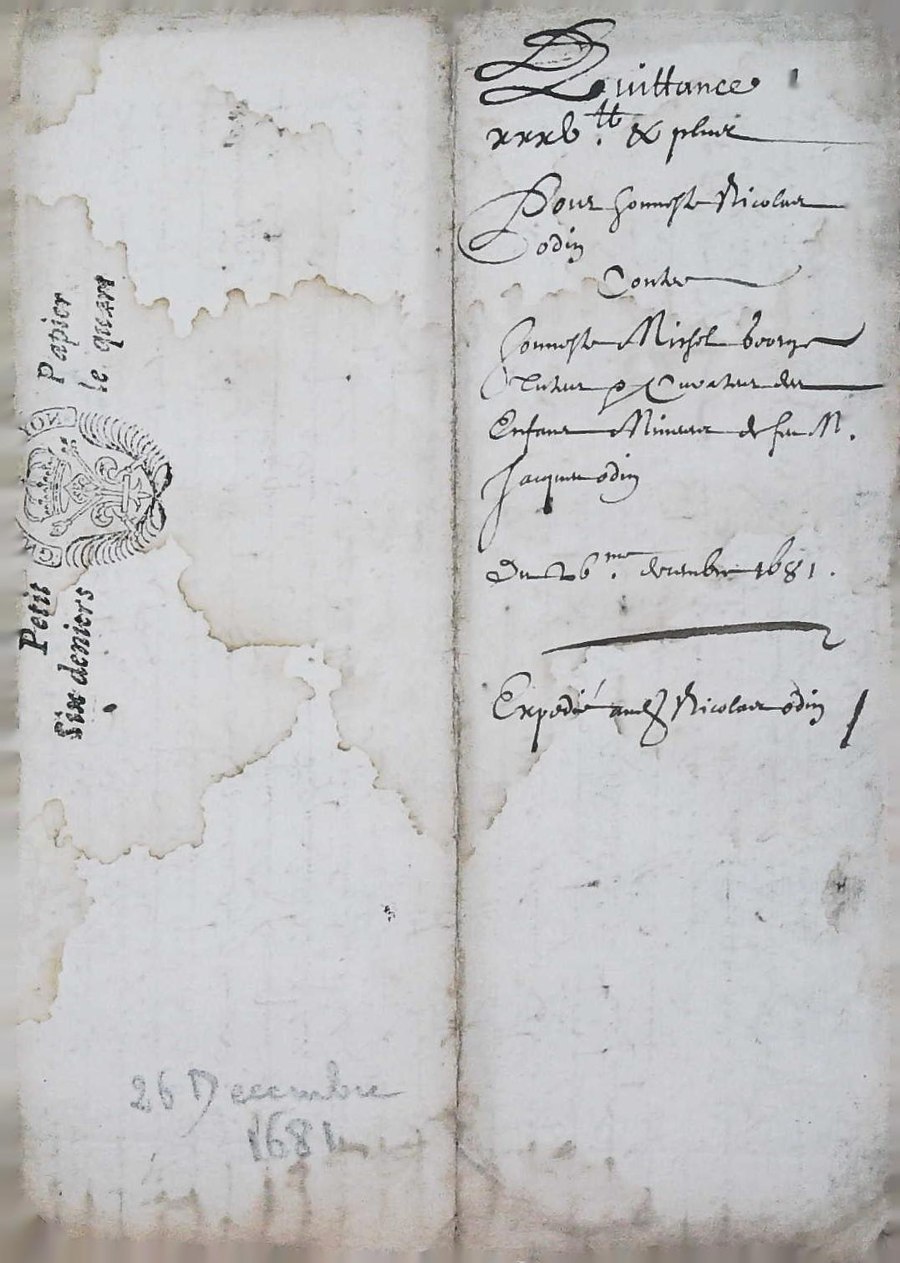 Petit Papier
Six deniers le quart
26 Decembre
1681
Quittance
xxxv ₶. & plus
Pour honneste Nicolas
odin
Contre
honneste Michel George
Tuteur & Curateur des
Enfans Mineurs de feu M.
Jacques odin
Du 26.me decembre 1681.
Expedié aud Nicolas odin